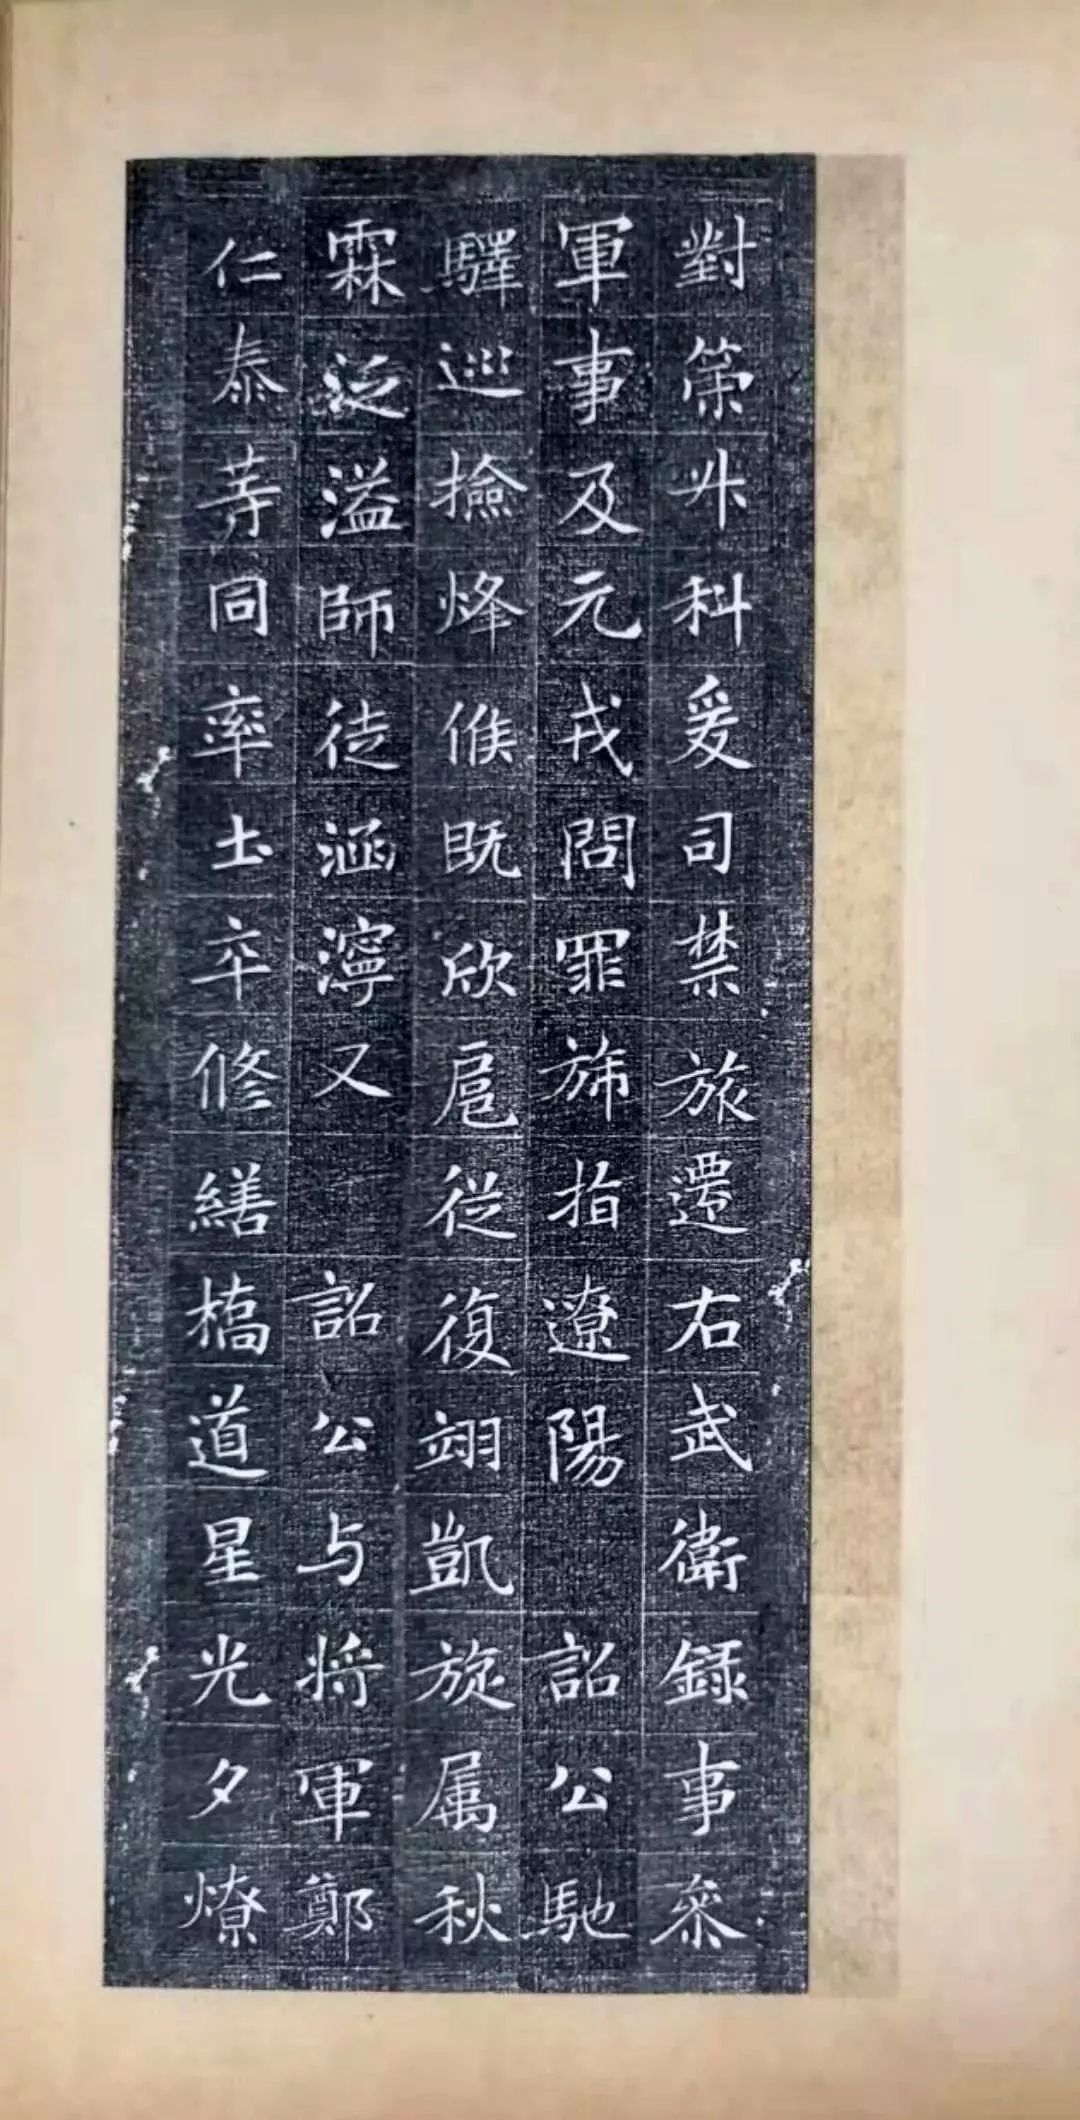 對策升科爰司禁旅遷右武衛錄事叅
軍事及元戎問罪旆指遼陽 詔公馳
驛巡撿烽候既欣扈從復翊凱旋属秋
霖泛溢師徒涵濘又 詔公与将軍鄭
仁泰䓁同率土卒修繕橋道星光夕燎